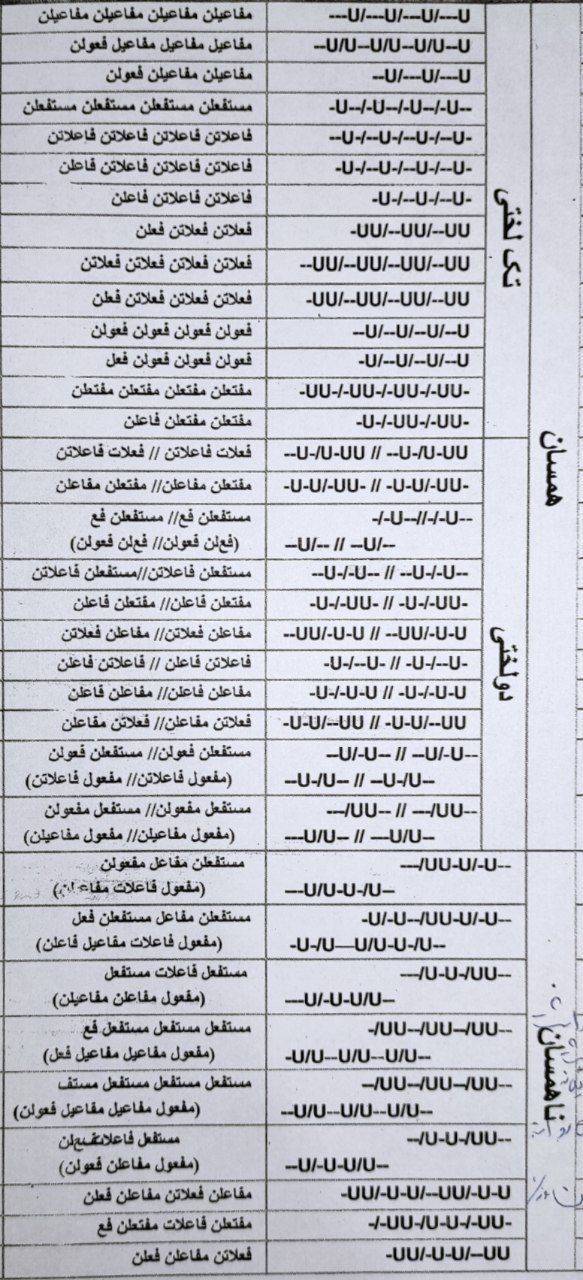 همسان
تک لختی
U---/U---/U---/U--- مفاعیلن مفاعیلن مفاعیلن مفاعیلن
U--U/U--U/U--U/U-- مفاعیل مفاعیل مفاعیل فعولن
U---/U---/U-- مفاعیلن مفاعیلن فعولن
--U-/--U-/--U-/--U- مستفعلن مستفعلن مستفعلن مستفعلن
-U--/-U--/-U--/-U-- فاعلاتن فاعلاتن فاعلاتن فاعلاتن
-U--/-U--/-U--/-U- فاعلاتن فاعلاتن فاعلاتن فاعلن
-U--/-U--/-U- فاعلاتن فاعلاتن فاعلن
UU--/UU--/UU- فعلاتن فعلاتن فعلن
UU--/UU--/UU--/UU-- فعلاتن فعلاتن فعلاتن فعلاتن
UU--/UU--/UU--/UU- فعلاتن فعلاتن فعلاتن فعلن
U--/U--/U--/U-- فعولن فعولن فعولن فعولن
U--/U--/U--/U- فعولن فعولن فعولن فعل
-UU-/-UU-/-UU-/-UU- مفتعلن مفتعلن مفتعلن مفتعلن
-UU-/-UU-/-U- مفتعلن مفتعلن فاعلن
دولختی
UU-U/-U-- // UU-U/-U-- فعلات فاعلاتن // فعلات فاعلاتن
-UU-/U-U- // -UU-/U-U- مفتعلن مفاعلن// مفتعلن مفاعلن
--U-/-//--U-/- مستفعلن فع// مستفعلن فع
--/U-- // --/U-- (فع‌لن فعولن// فع‌لن فعولن)
--U-/-U-- // --U-/-U-- مستفعلن فاعلاتن//مستفعلن فاعلاتن
-UU-/-U- // -UU-/-U- مفتعلن فاعلن// مفتعلن فاعلن
U-U-/UU-- // U-U-/UU-- مفاعلن فعلاتن// مفاعلن فعلاتن
-U--/-U- // -U--/-U- فاعلاتن فاعلن // فاعلاتن فاعلن
U-U-/-U- // U-U-/-U- مفاعلن فاعلن// مفاعلن فاعلن
UU--/U-U- // UU--/U-U- فعلاتن مفاعلن// فعلاتن مفاعلن
--U-/U-- // --U-/U-- مستفعلن فعولن// مستفعلن فعولن
--U/-U-- // --U/-U-- (مفعول فاعلاتن// مفعول فاعلاتن)
--UU/--- // --UU/--- مستفعل مفعولن// مستفعل مفعولن
--U/U--- // --U/U--- (مفعول مفاعیلن// مفعول مفاعیلن)
ناهمسان
--U-/U-UU/--- مستفعلن مفاعل مفعولن
--U/-U-U/U--- (مفعول فاعلات مفاعیلن)
--U-/U-UU/--U-/U- مستفعلن مفاعل مستفعلن فعل
--U/-U-U/U--U/-U- (مفعول فاعلات مفاعیل فاعلن)
--UU/-U-U/--- مستفعل فاعلات مستفعل
--U/U-U-/U--- (مفعول مفاعلن مفاعیلن)
--UU/--UU/--UU/- مستفعل مستفعل مستفعل فع
--U/U--U/U--U/U- (مفعول مفاعیل مفاعیل فعل)
--UU/--UU/--UU/-- مستفعل مستفعل مستفعل مستف
--U/U--U/U--U/U-- (مفعول مفاعیل مفاعیل فعولن)
--UU/-U-U/-- مستفعل فاعلات
--U/U-U-/U-- (مفعول مفاعلن فعولن)
U-U-/UU--/U-U-/UU- مفاعلن فعلاتن مفاعلن فعلن
-UU-/-U-U/-UU-/- مفتعلن فاعلات مفتعلن فع
UU--/U-U-/UU- فعلاتن مفاعلن فعلن